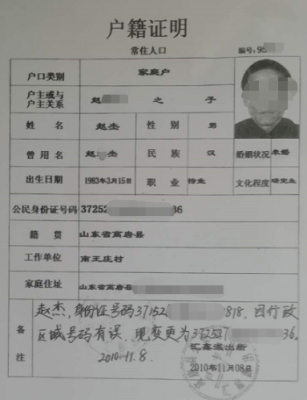 户籍证明
常住人口 编号:95
户口类别 家庭户
户主或与户主关系 赵 之子
姓名 赵杰 性别 男
曾用名 赵 民族 汉 婚姻状况 未婚
出生日期 1983年3月15日 职业 文化程度 研究生
公民身份证号码 37252 36
籍贯 山东省高唐县
工作单位 南王庄村
家庭住址 山东省高唐县
备注
赵杰,身份证号码37152 818,因行政
区域号码有误,现变更为372527 36.
2010.11.8.
汇鑫派出所
2010年11月08日